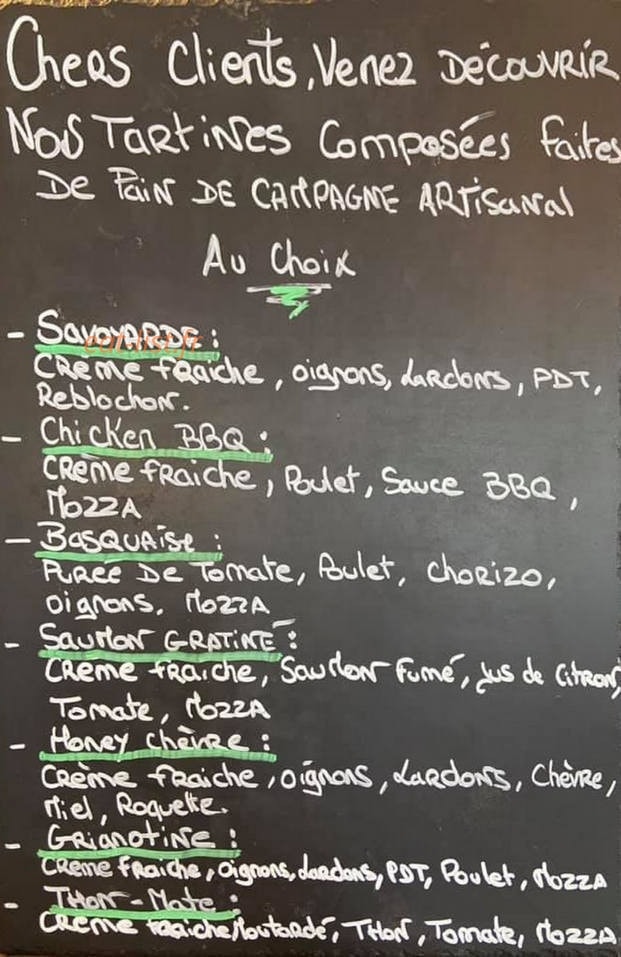 Chers Clients, Venez Découvrir
Nos Tartines Composées faites
De Pain De Campagne Artisanal
Au Choix
- Savoyarde :
Crème fraiche, oignons, Lardons, PDT,
Reblochon.
- Chicken BBQ :
Crème fraiche, Poulet, Sauce BBQ,
Mozza
- Basquaise :
Purée De Tomate, Poulet, Chorizo,
Oignons, Mozza
- Saumon Gratiné :
Crème fraiche, Saumon Fumé, Jus de Citron,
Tomate, Mozza
- Honey Chèvre :
Crème fraiche, oignons, Lardons, Chèvre,
Miel, Roquette.
- Grignotine :
Crème fraiche, Oignons, Lardons, PDT, Poulet, Mozza
- Thon-Mate :
Crème fraiche/Moutarde, Thon, Tomate, Mozza